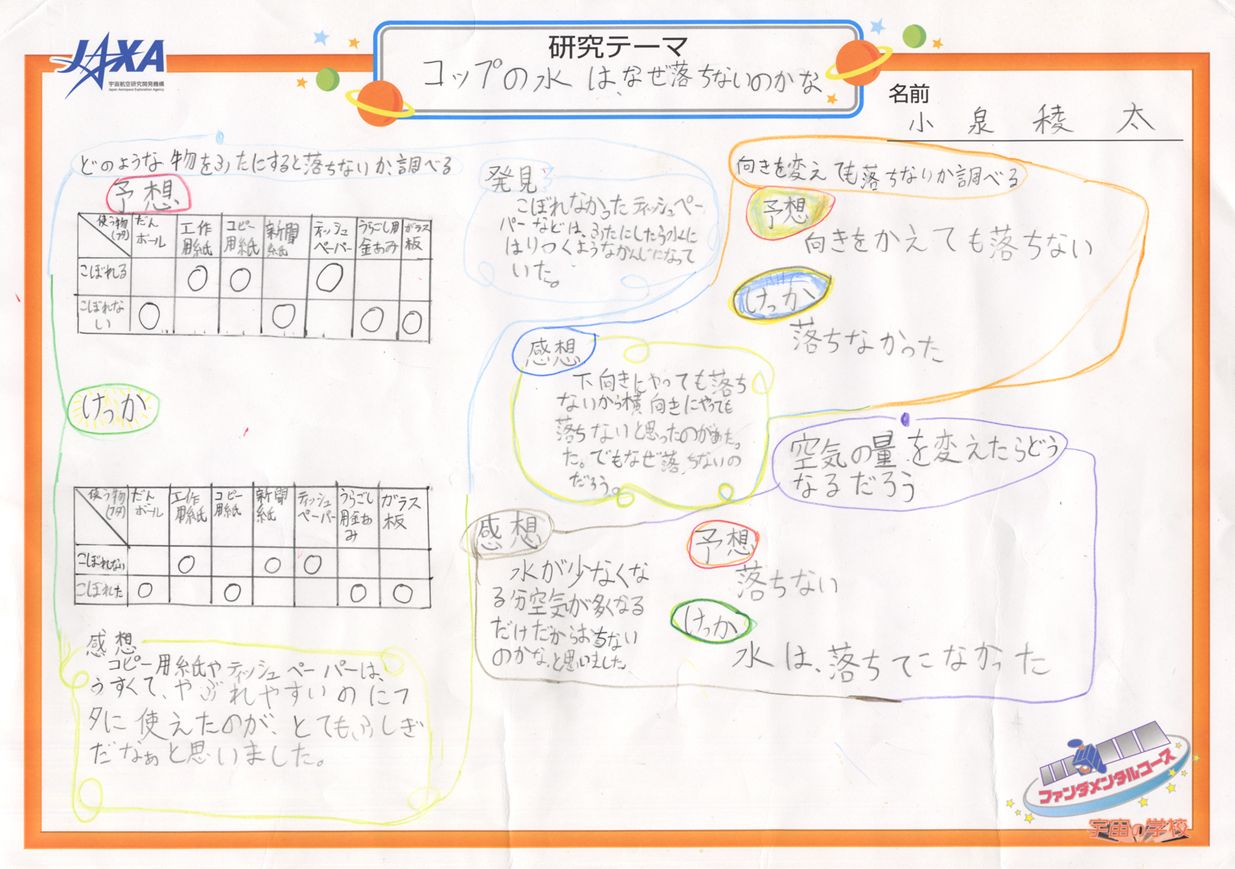 JAXA
宇宙航空研究開発機構
Japan Aerospace Exploration Agency
研究テーマ
コップの水は、なぜ落ちないのかな
名前
小泉稜太
どのような物をふたにすると落ちないか、調べる
予想
使う物(7つ)
だんボール
工作用紙
コピー用紙
新聞紙
ティッシュペーパー
うらごし用金あみ
ガラス板
こぼれる ○ ○ ○
こぼれない ○ ○ ○ ○
けっか
使う物(7つ)
だんボール
工作用紙
コピー用紙
新聞紙
ティッシュペーパー
うらごし用金あみ
ガラス板
こぼれない ○ ○ ○
こぼれた ○ ○ ○ ○
感想
コピー用紙やティッシュペーパーは、
うすくて、やぶれやすいのにフ
タに使えたのが、とてもふしぎ
だなぁと思いました。
発見
こぼれなかったティッシュペー
パーなどは、ふたにしたら水に
はりつくようなかんじになって
いた。
向きを変えても落ちないか調べる
予想
向きをかえても落ちない
けっか
落ちなかった
感想
下向きにやっても落ち
ないから横向きにやっても
落ちないと思ったのがあたっ
た。でもなぜ落ちないの
だろう。
空気の量を変えたらどう
なるだろう
予想
落ちない
けっか
水は、落ちてこなかった
感想
水が少なくな
る分空気が多くなる
だけだからおちない
のかな。と思いました。
ファンダメンタルコース
宇宙の学校